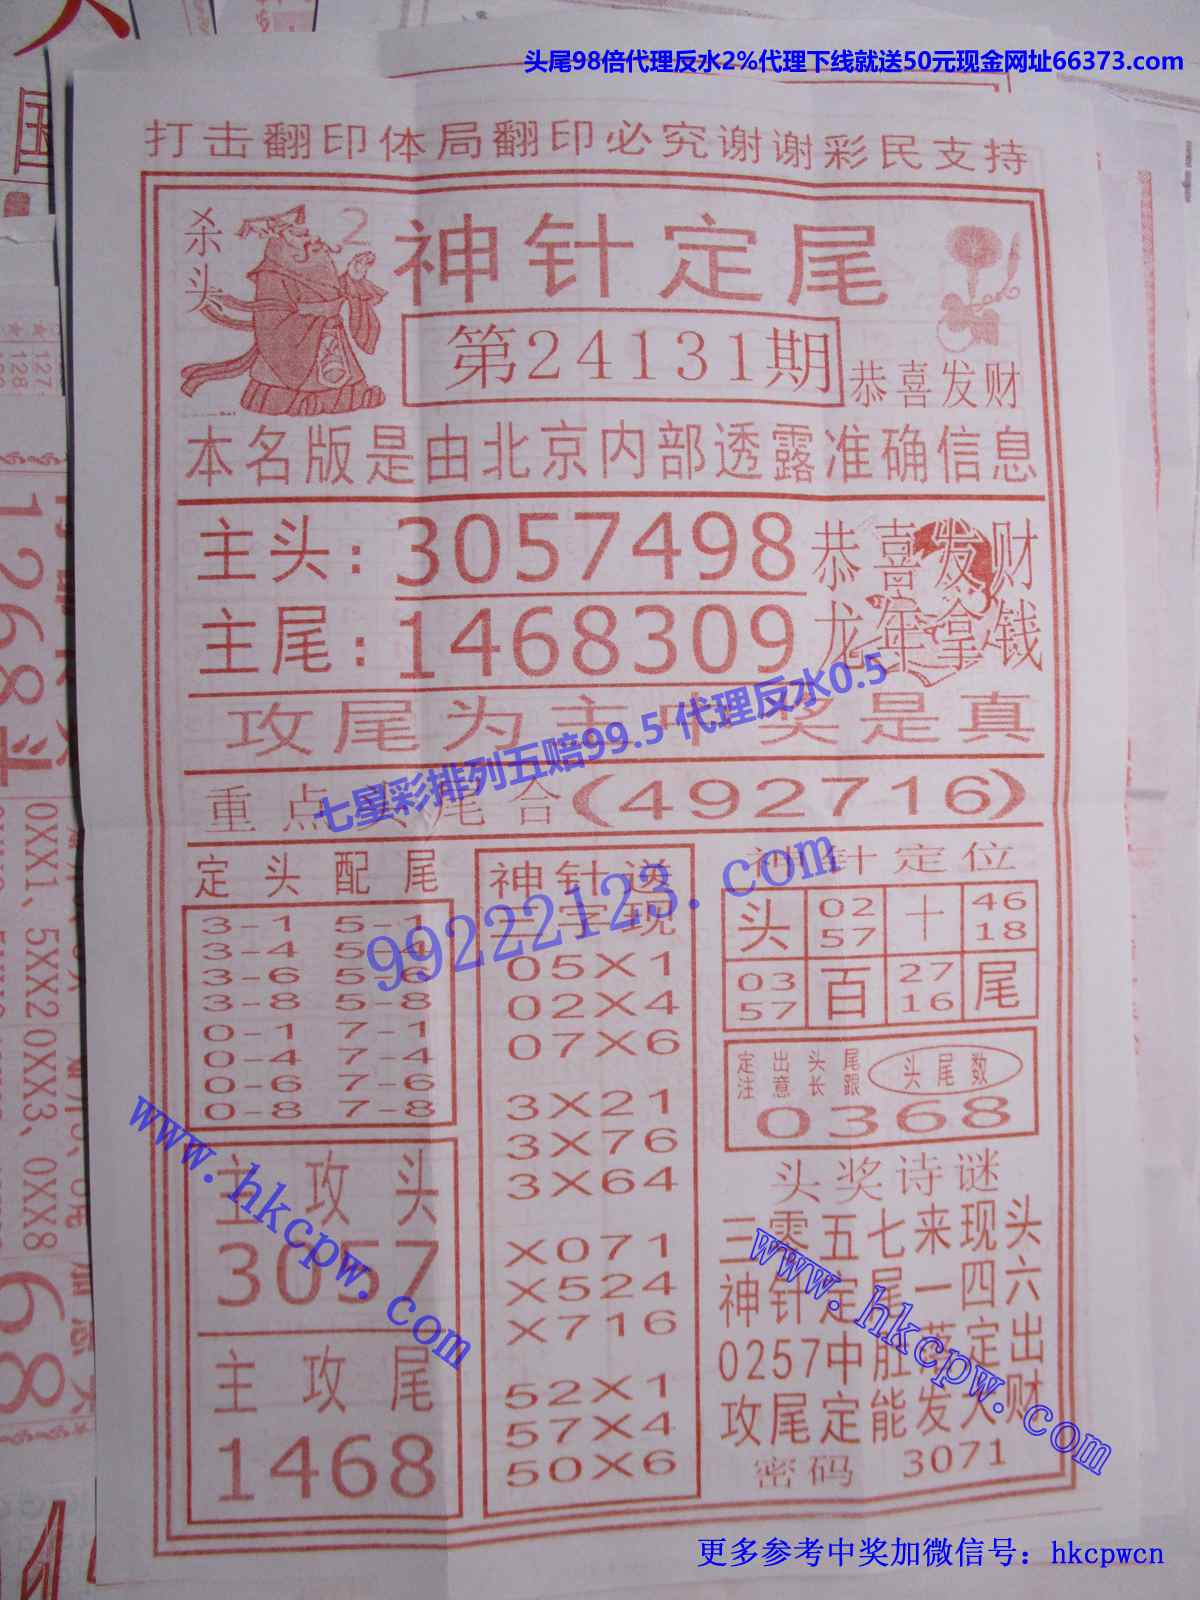 头尾98倍代理反水2%代理下线就送50元现金网址66373.com
打击翻印体局翻印必究谢谢彩民支持
杀头 2
神针定尾
第24131期
恭喜发财
本名版是由北京内部透露准确信息
主头:3057498
恭喜发财
主尾:1468309
龙年拿钱
攻尾为主中奖是真
七星彩排列五赔99.5 代理反水0.5
重点 尾合(492716)
99222123.com
定头配尾
3-1 5-1
3-4 5-4
3-6 5-6
3-8 5-8
0-1 7-1
0-4 7-4
0-6 7-6
0-8 7-8
主攻头
3057
主攻尾
1468
神针送
三字现
05X1
02X4
07X6
3X21
3X76
3X64
X071
X524
X716
52X1
57X4
50X6
神针定位
头 02 57 十 46 18
03 57 百 27 16 尾
定出头尾
注意长跟
头尾数
0368
头奖诗谜
三零五七来现头
神针定尾一四六
0257中肚落定出
攻尾定能发大财
密码 3071
www.hkcpw.com
www.hkcpw.com
更多参考中奖加微信号：hkcpwcn
国
127
128
1268斗
0XX1、5XX2
0XX3、0XX8
68